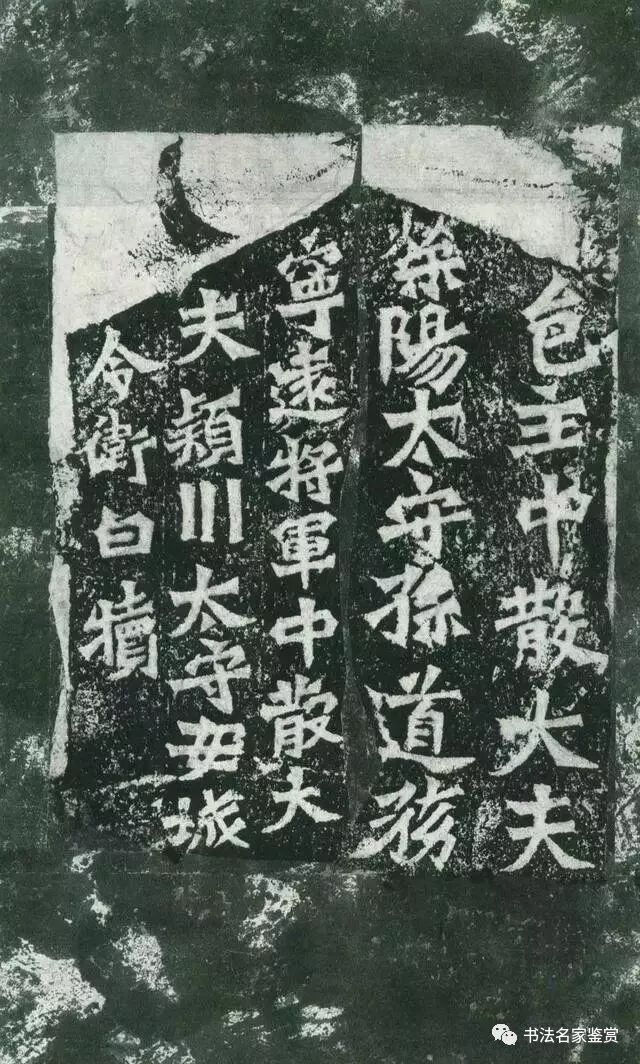 邑主中散大夫
滎陽太守孫道務
寧遠將軍中散大
夫潁川太守安城
令衛白犢
书法名家鉴赏